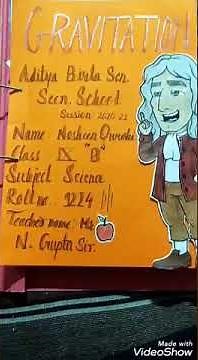 GRAVITATION
Aditya Birla Sen.
Secn. School
Session 2020-21
Name - Nosheen
Class IX "B"
Subject Science
Roll no. 1224
Teacher name: Mr.
N. Gupta Sir.
Made with
VideoShow